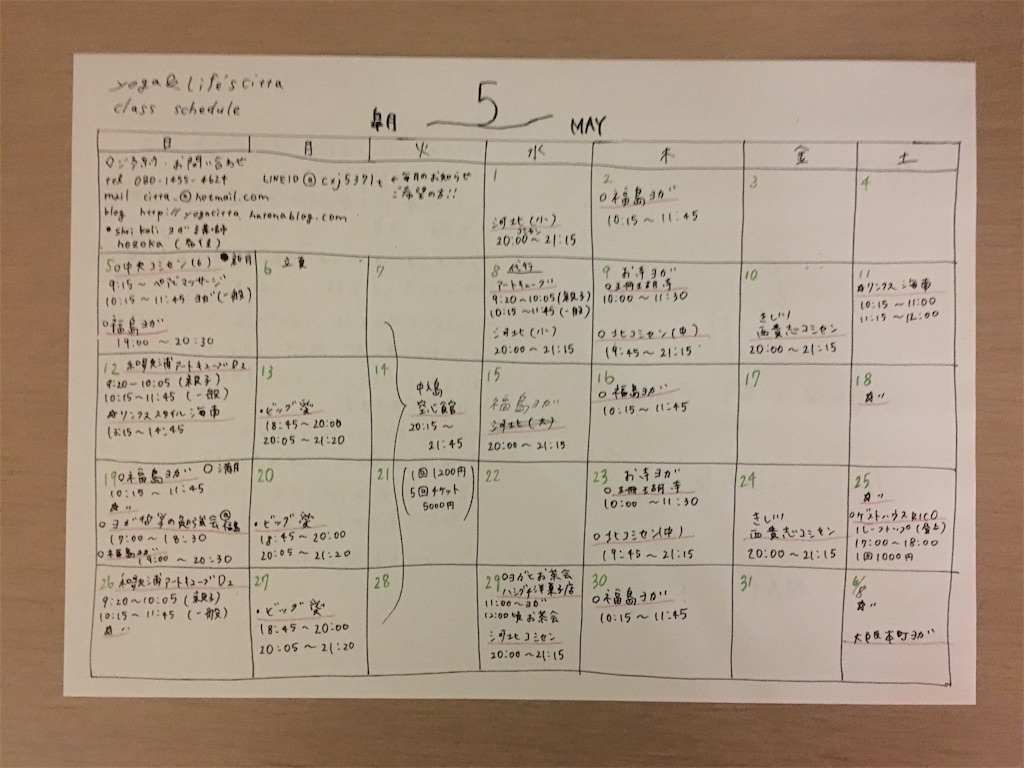 yoga & Life's citta
class schedule
皐月 5 MAY
日 月 火 水 木 金 土
○ご予約・お問い合わせ
tel 080-1455-4624
LINEID @cxj5371t ←毎月のお知らせ
ご希望の方!!
mail citta.@hotmail.com
blog http://yogacitta.hatenablog.com
・shri kali ヨガ講師
1
河北(小)
コミセン
20:00〜21:15
2
○福島ヨガ
10:15〜11:45
3
4
5 ○中央コミセン(6) ●新月
9:15〜ベビマッサージ
10:15〜11:45 ヨガ(一般)
○福島ヨガ
19:00〜20:30
6 立夏
7
8 代行
アートキューブ
9:20〜10:05(親子)
10:15〜11:45(一般)
河北(小)
20:00〜21:15
9 お寺ヨガ
10:00〜11:30
○北コミセン(中)
19:45〜21:15
10
きし川
西貴志コミセン
20:00〜21:15
11
☆リンクス 海南
10:15〜11:00
11:15〜12:00
12 和歌浦アートキューブD2
9:20〜10:05(親子)
10:15〜11:45(一般)
☆リンクススタイル海南
13:15〜14:45
13
・ビッグ愛
18:45〜20:00
20:05〜21:20
14
中之島
空心館
20:15〜
21:45
15
福島ヨガ
河北(大)
20:00〜21:15
16
○福島ヨガ
10:15〜11:45
17
18
☆〃
19 ○福島ヨガ ○満月
10:15〜11:45
☆〃
○ヨガ哲学の勉強会@福島
17:00〜18:30
○福島ヨガ
19:00〜20:30
20
・ビッグ愛
18:45〜20:00
20:05〜21:20
21
(1回1200円
5回チケット
5000円)
22
23 お寺ヨガ
10:00〜11:30
○北コミセン(中)
19:45〜21:15
24
きし川
西貴志コミセン
20:00〜21:15
25
☆〃
○ゲストハウスRICO
17:00〜18:00
1回1000円
26 和歌浦アートキューブD2
9:20〜10:05(親子)
10:15〜11:45(一般)
☆〃
27
・ビッグ愛
18:45〜20:00
20:05〜21:20
28
29 ○ヨガとお茶会
ハシヅメ洋菓子店
11:00〜ヨガ
12:00頃お茶会
河北コミセン
20:00〜21:15
30
○福島ヨガ
10:15〜11:45
31
6/8
☆〃
大阪本町ヨガ